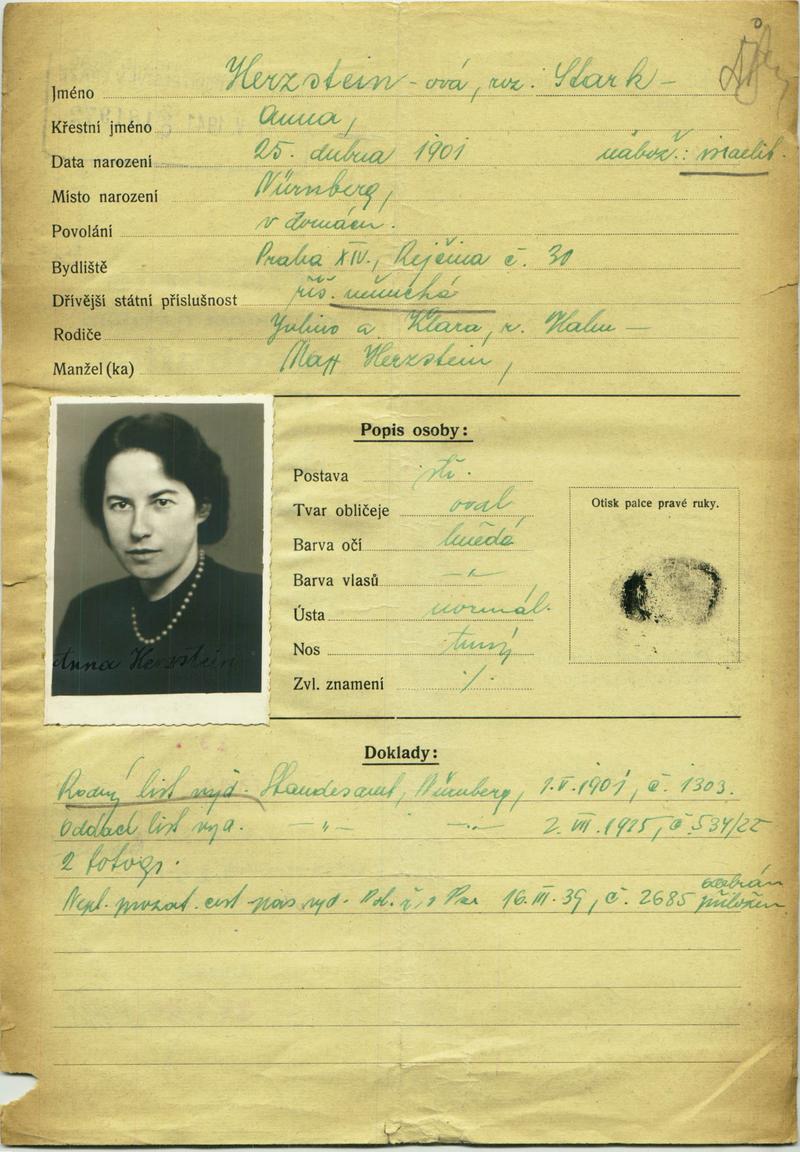 Jméno Herzstein-ová, roz. Stark-
Křestní jméno Anna,
Data narození 25. dubna 1901 nábož.: israelit.
Místo narození Nürnberg,
Povolání v domácn.
Bydliště Praha XIV., č. 30
Dřívější státní příslušnost říš. německá
Rodiče a Klara, r. Hahn —
Manžel (ka) Max Herzstein,
Popis osoby:
Postava stř.
Tvar obličeje oval,
Barva očí hnědá
Barva vlasů -„-,
Ústa normál.
Nos
Zvl. znamení ./.
Otisk palce pravé ruky.
Anna Herzstein
Doklady:
Rodný list vyd. Standesamt, Nürnberg, 1.V.1901, č. 1303.
Oddací list vyd. -„- -„- 2. VII. 1925, č. 534/22
2 fotogr.
Nepl. prozat. cest. pas vyd. 16.III.39, č. 2685 odebrán
přiložen